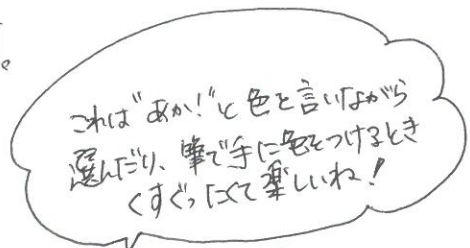 これは"あか!"と色を言いながら
選んだり、筆で手に色をつけるとき
くすぐったくて楽しいね!